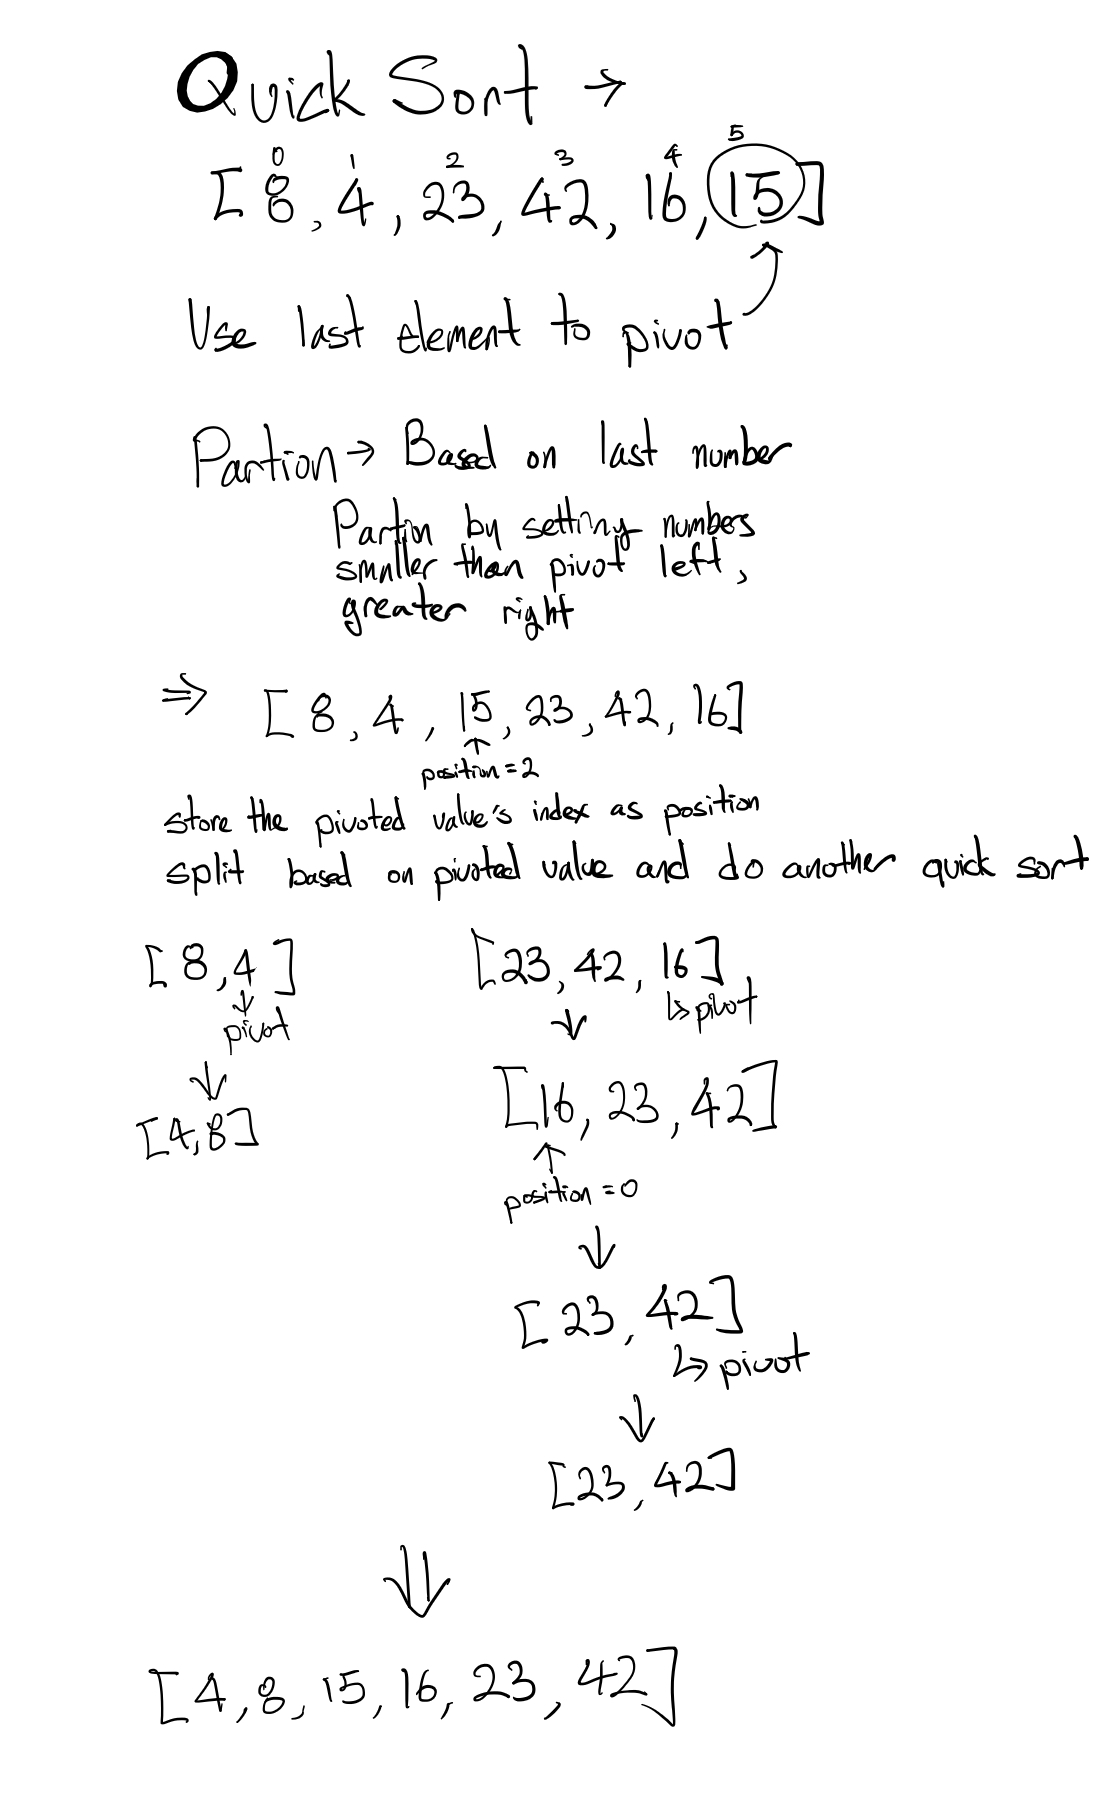 Quick Sort →
0 1 2 3 4 5
[8, 4, 23, 42, 16, 15]
Use last element to pivot
Partion → Based on last number
Partin by setting numbers
smaller than pivot left,
greater right
⇒ [8, 4, 15, 23, 42, 16]
↑
position = 2
store the pivoted value's index as position
split based on pivoted value and do another quick sort
[8, 4] [23, 42, 16]
↓ ↳ pivot
pivot ↓
↓ [16, 23, 42]
[4, 8]
↑
position = 0
↓
[23, 42]
↳ pivot
↓
[23, 42]
⇓
[4, 8, 15, 16, 23, 42]